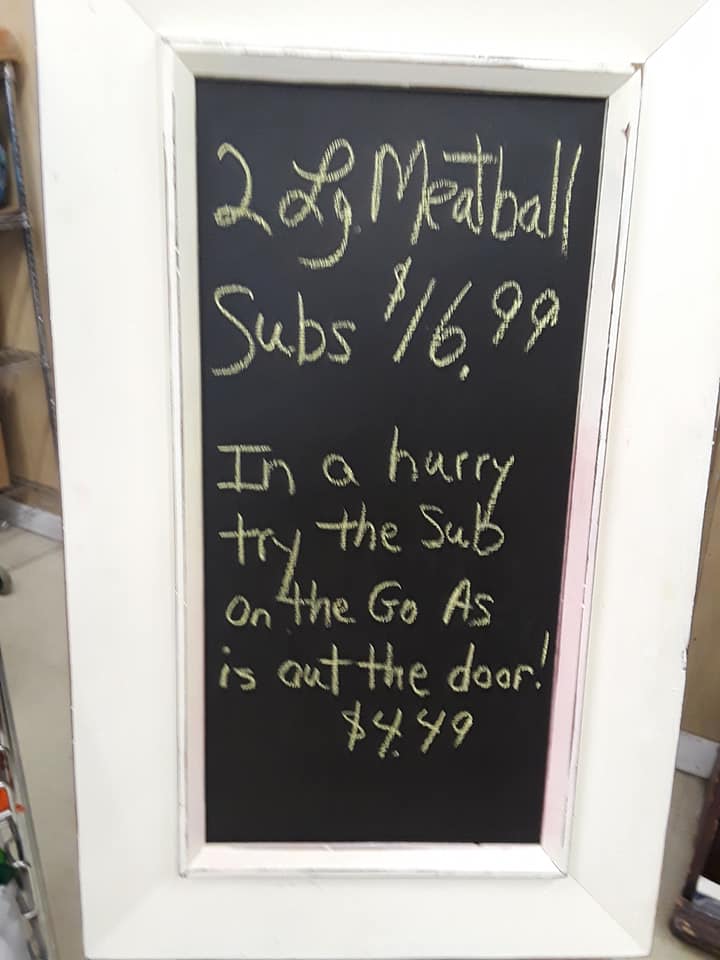 2 Lg Meatball
Subs $16.99
In a hurry
try the Sub
on the Go As
is out the door!
$4.49